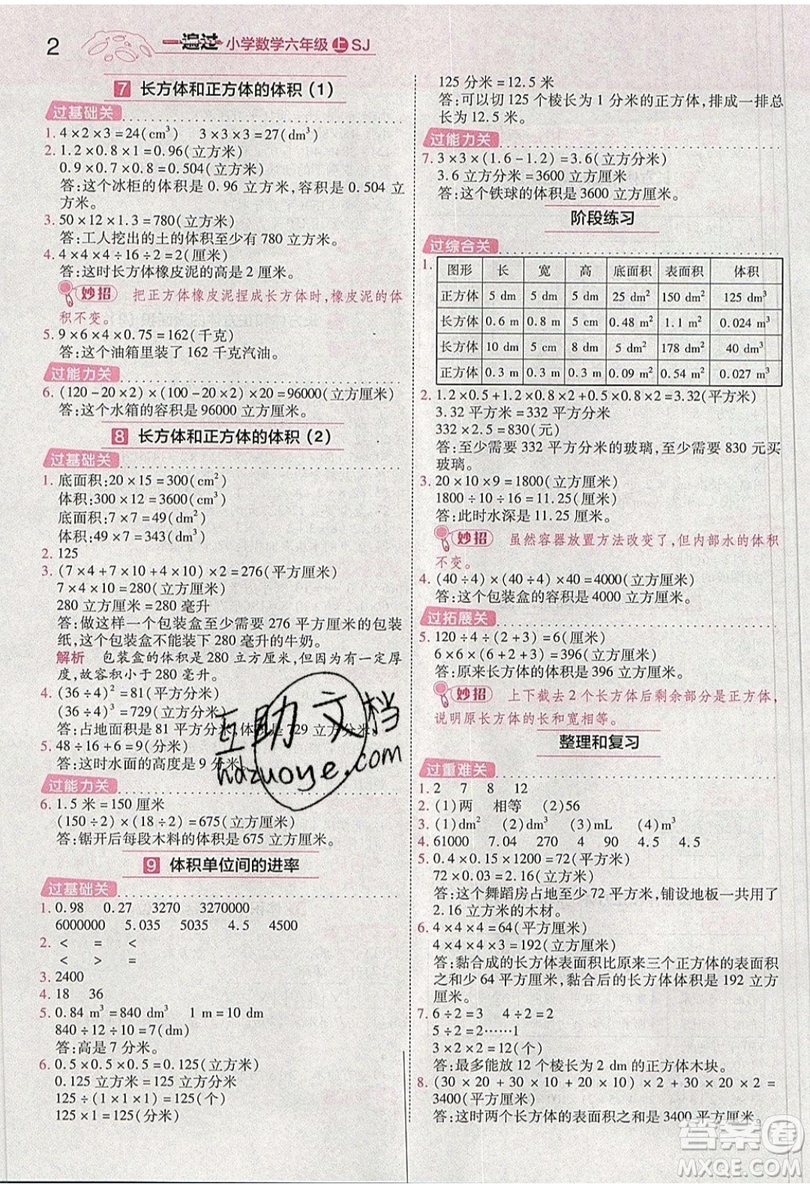 2
一遍过 小学数学六年级 上 SJ
7 长方体和正方体的体积(1)
过基础关
1. 4×2×3=24(cm³) 3×3×3=27(dm³)
2. 1.2×0.8×1=0.96(立方米)
0.9×0.7×0.8=0.504(立方米)
答:这个冰柜的体积是 0.96 立方米,容积是 0.504 立方米。
3. 50×12×1.3=780(立方米)
答:工人挖出的土的体积至少有 780 立方米。
4. 4×4×4÷16÷2=2(厘米)
答:这时长方体橡皮泥的高是 2 厘米。
妙招 把正方体橡皮泥捏成长方体时,橡皮泥的体积不变。
5. 9×6×4×0.75=162(千克)
答:这个油箱里装了 162 千克汽油。
过能力关
6. (120-20×2)×(100-20×2)×20=96000(立方厘米)
答:这个水箱的容积是 96000 立方厘米。
8 长方体和正方体的体积(2)
过基础关
1. 底面积:20×15=300(cm²)
体积:300×12=3600(cm³)
底面积:7×7=49(dm²)
体积:49×7=343(dm³)
2. 125
3. (7×4+7×10+4×10)×2=276(平方厘米)
7×4×10=280(立方厘米)
280 立方厘米=280 毫升
答:做这样一个包装盒至少需要 276 平方厘米的包装纸,这个包装盒不能装下 280 毫升的牛奶。
解析 包装盒的体积是 280 立方厘米,但因为有厚度,故容积小于 280 毫升。
4. (36÷4)²=81(平方分米)
(36÷4)³=729(立方分米)
答:占地面积是 81 平方分米,体积是 729 立方分米。
5. 48÷16×3=9(分米)
答:这时水面的高度是 9 分米。
过能力关
6. 1.5 米=150 厘米
(150÷2)×(18÷2)=675(立方厘米)
答:锯开后每段木料的体积是 675 立方厘米。
9 体积单位间的进率
过基础关
1. 0.98 0.27 3270 3270000
6000000 5.035 5035 4.5 4500
2. < = <
< > >
3. 2400
4. 18 36
5. 0.84 m³=840 dm³ 1 m=10 dm
840÷12÷10=7(dm)
答:高是 7 分米。
6. 0.5×0.5×0.5=0.125(立方米)
0.125 立方米=125 立方分米
125÷(1×1×1)=125(个)
125×1=125(分米)
125 分米=12.5 米
答:可以切 125 个棱长为 1 分米的正方体,排成一排总长为 12.5 米。
过能力关
7. 3×3×(1.6-1.2)=3.6(立方分米)
3.6 立方分米=3600 立方厘米
答:这个铁球的体积是 3600 立方厘米。
阶段练习
过综合关
1.
图形 长 宽 高 底面积 表面积 体积
正方体 5 dm 5 dm 5 dm 25 dm² 150 dm² 125 dm³
长方体 0.6 m 0.8 m 5 cm 0.48 m² 1.1 m² 0.024 m³
长方体 10 dm 5 dm 8 cm 50 dm² 124 dm² 40 dm³
正方体 0.3 m 0.3 m 0.3 m 0.09 m² 0.54 m² 0.027 m³
2. 1.2×0.5+1.2×0.8×2+0.5×0.8×2=3.32(平方米)
3.32 平方米=332 平方分米
332×2.5=830(元)
答:至少需要 332 平方分米的玻璃,至少需要 830 元买玻璃。
3. 20×10×9=1800(立方厘米)
1800÷10÷16=11.25(厘米)
答:此时水深是 11.25 厘米。
妙招 虽然容器放置方法改变了,但内部水的体积不变。
4. (40÷4)×(40÷4)×40=4000(立方厘米)
答:这个包装盒的容积是 4000 立方厘米。
过拓展关
5. 120÷4÷(2+3)=6(厘米)
6×6×(6+2+3)=396(立方厘米)
答:原来长方体的体积是 396 立方厘米。
妙招 上下截去 2 个长方体后剩余部分是正方体,说明原长方体的长和宽相等。
整理和复习
过重难关
1. 2 7 8 12
2. (1)两 相等 (2)56
3. (1)dm² (2)dm³ (3)mL (4)m³
4. 61000 7.04 7040 90 4.5 4.5
5. 0.4×0.15×1200=72(平方米)
72×0.03=2.16(立方米)
答:这个舞蹈房占地至少 72 平方米,铺设地板一共需要 2.16 立方米的木材。
6. 4×4×4=64(平方厘米)
4×4×4×3=192(立方厘米)
答:黏合成的长方体表面积比原来三个正方体的表面积之和少 64 平方厘米,长方体的体积是 192 立方厘米。
7. 6÷2=3 4÷2=2
5÷2=2……1
3×2×2=12(个)
答:最多能放 12 个棱长为 2 dm 的正方体木块。
8. (30×20+30×12+20×12)×2+20×12×2×2=3400(平方厘米)
答:这时两个长方体的表面积之和是 3400 平方厘米。
互助文档
hdzuoye.com
答案圈
MXQE.COM